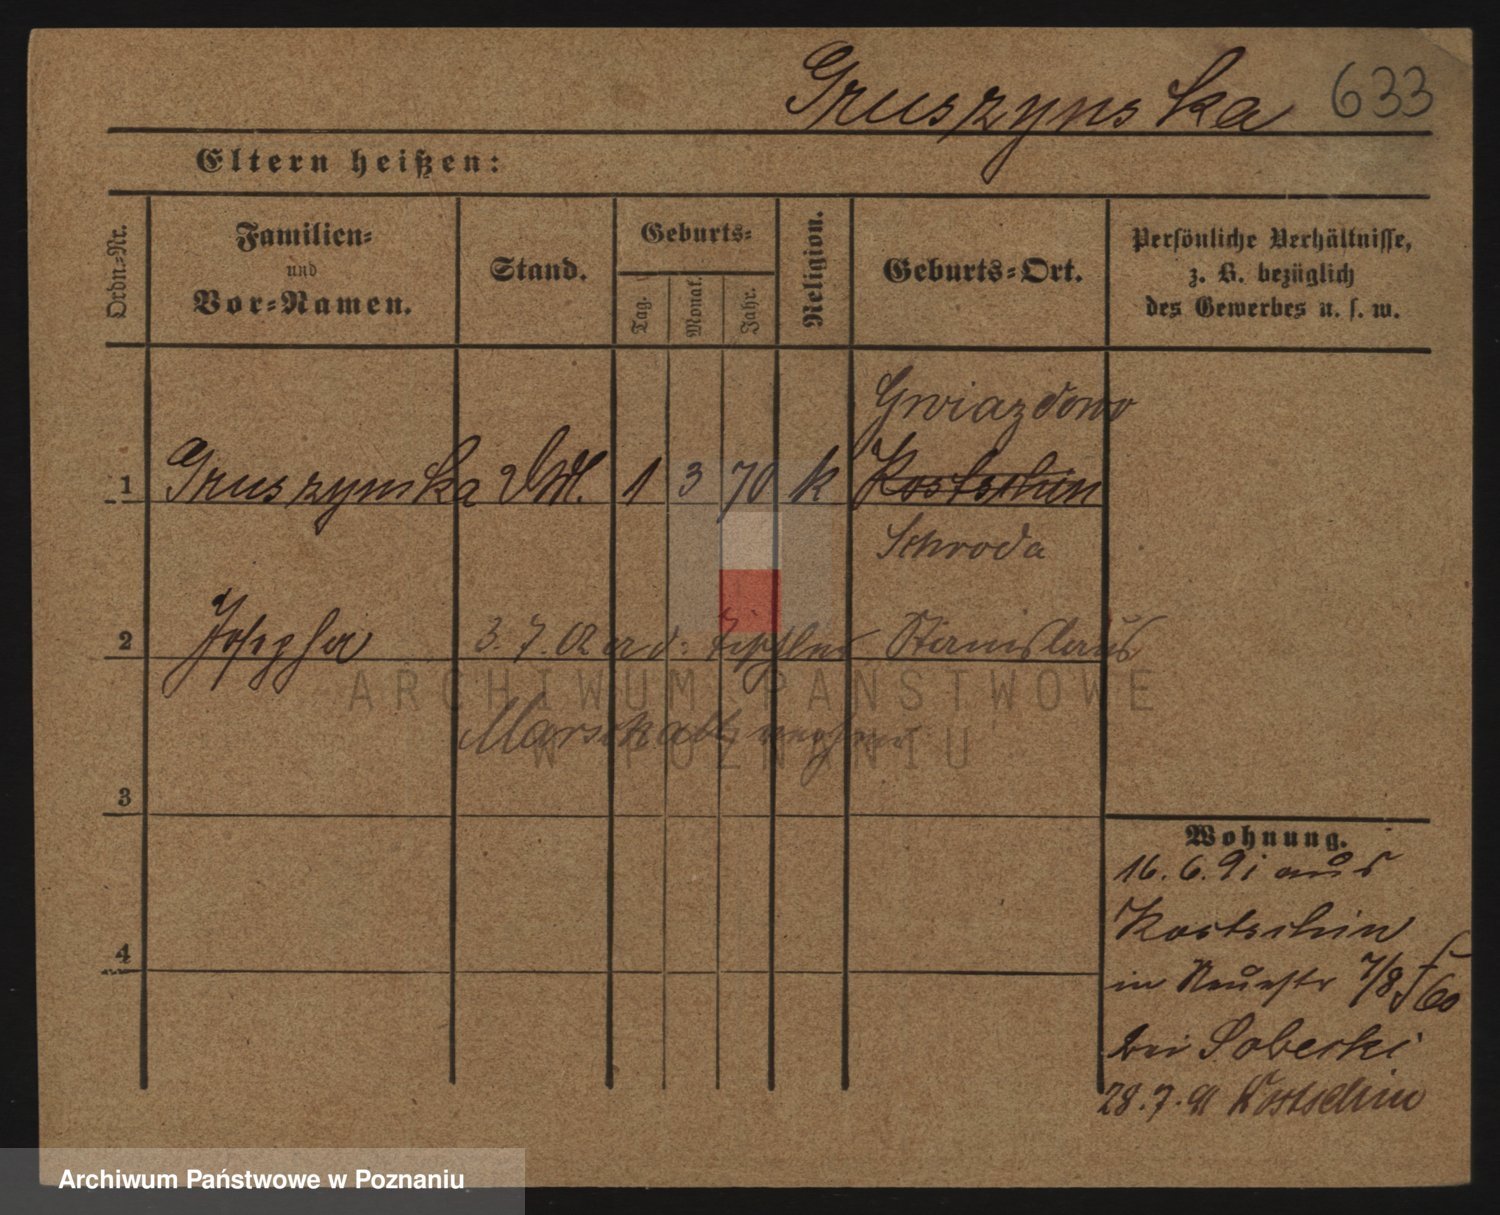 Gruszynska 633
Eltern heißen:
Ordn.-Nr.
Familien-
und
Vor-Namen.
Stand.
Geburts-
Tag.
Monat.
Jahr.
Religion.
Geburts-Ort.
Persönliche Verhältnisse,
z. B. bezüglich
des Gewerbes u. s. w.
Gwiazdowo
1 Gruszynska 1 3 70 k Kostschin
Schroda
2 Josepha 3. 7. 02 Stanislaus
ARCHIWUM PAŃSTWOWE
W POZNANIU
3
4
Wohnung.
16. 6. 91 aus
Kostschin
in 7/8 60
bei Soberski
28. 7. 91 Kostschin
Archiwum Państwowe w Poznaniu